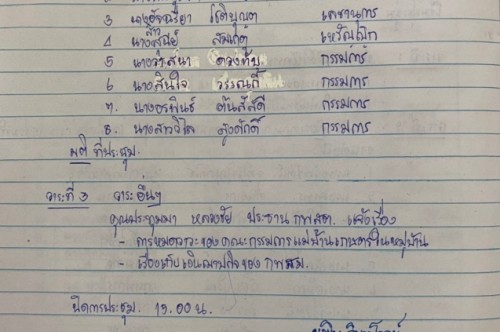 3 นางอัจฉรียา โรติบุญตา เลขานุการ
4 นางสาวสุนีย์ เหรัญญิก
5 นางวาสนา ดวงทับ กรรมการ
6 นางสินใจ วรรณดี กรรมการ
7. นางอรพินธ์ ต้นสิสดี กรรมการ
8. นางสาววิไล สูงศักดิ์ กรรมการ
มติ ที่ประชุม.
วาระที่ 3 วาระอื่นๆ
คุณประทุมมา หลวงชัย ประธาน กพสต. แจ้งเรื่อง
- การหมดวาระของคณะกรรมการแม่บ้านเกษตรในหมู่บ้าน
- เรื่องเก็บเงินฌาปกิจของ กพสม.
ปิดการประชุม. 15.00 น.